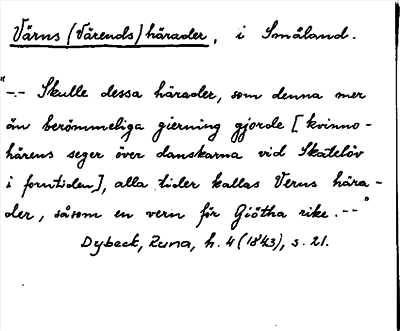 Värns (Värends) härader, i Småland.
"-.- Skulle dessa härader, som denna mer
än berömmeliga gierning gjorde [kvinno-
härens seger över danskarna vid Skatelöv
i forntiden], alla tider kallas Verns hära-
der, såsom en vern för Giötha rike.--"
Dybeck, Runa, h. 4 (1843), s. 21.